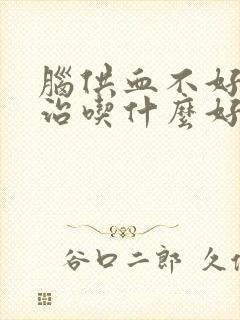 腦供血不好
治喫什麼好
谷口二郎 久